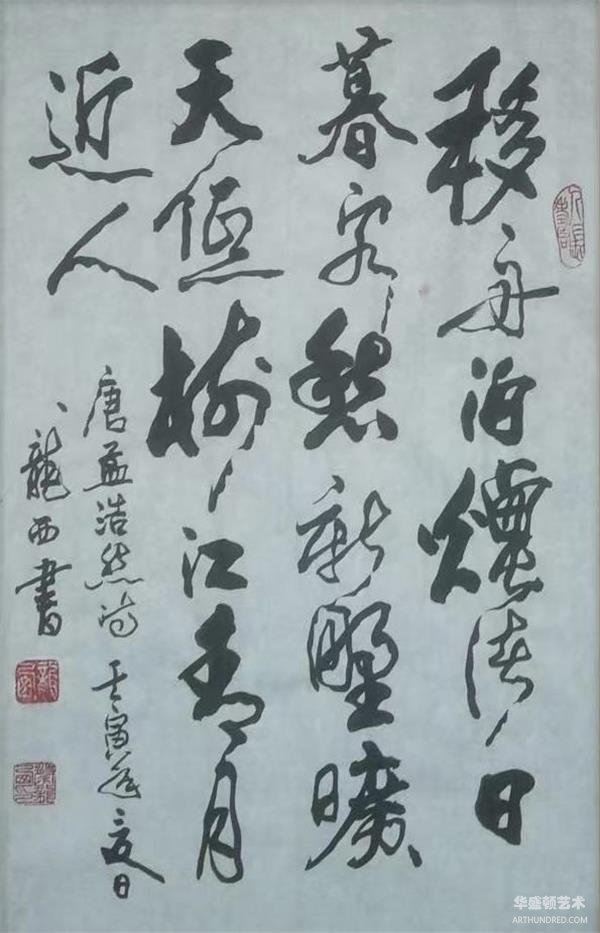 移舟泊煙渚日
暮客愁新野曠
天低樹江清月
近人
唐孟浩然詩 壬寅夏日
龍西書
华盛顿艺术
ARTHUNDRED.COM